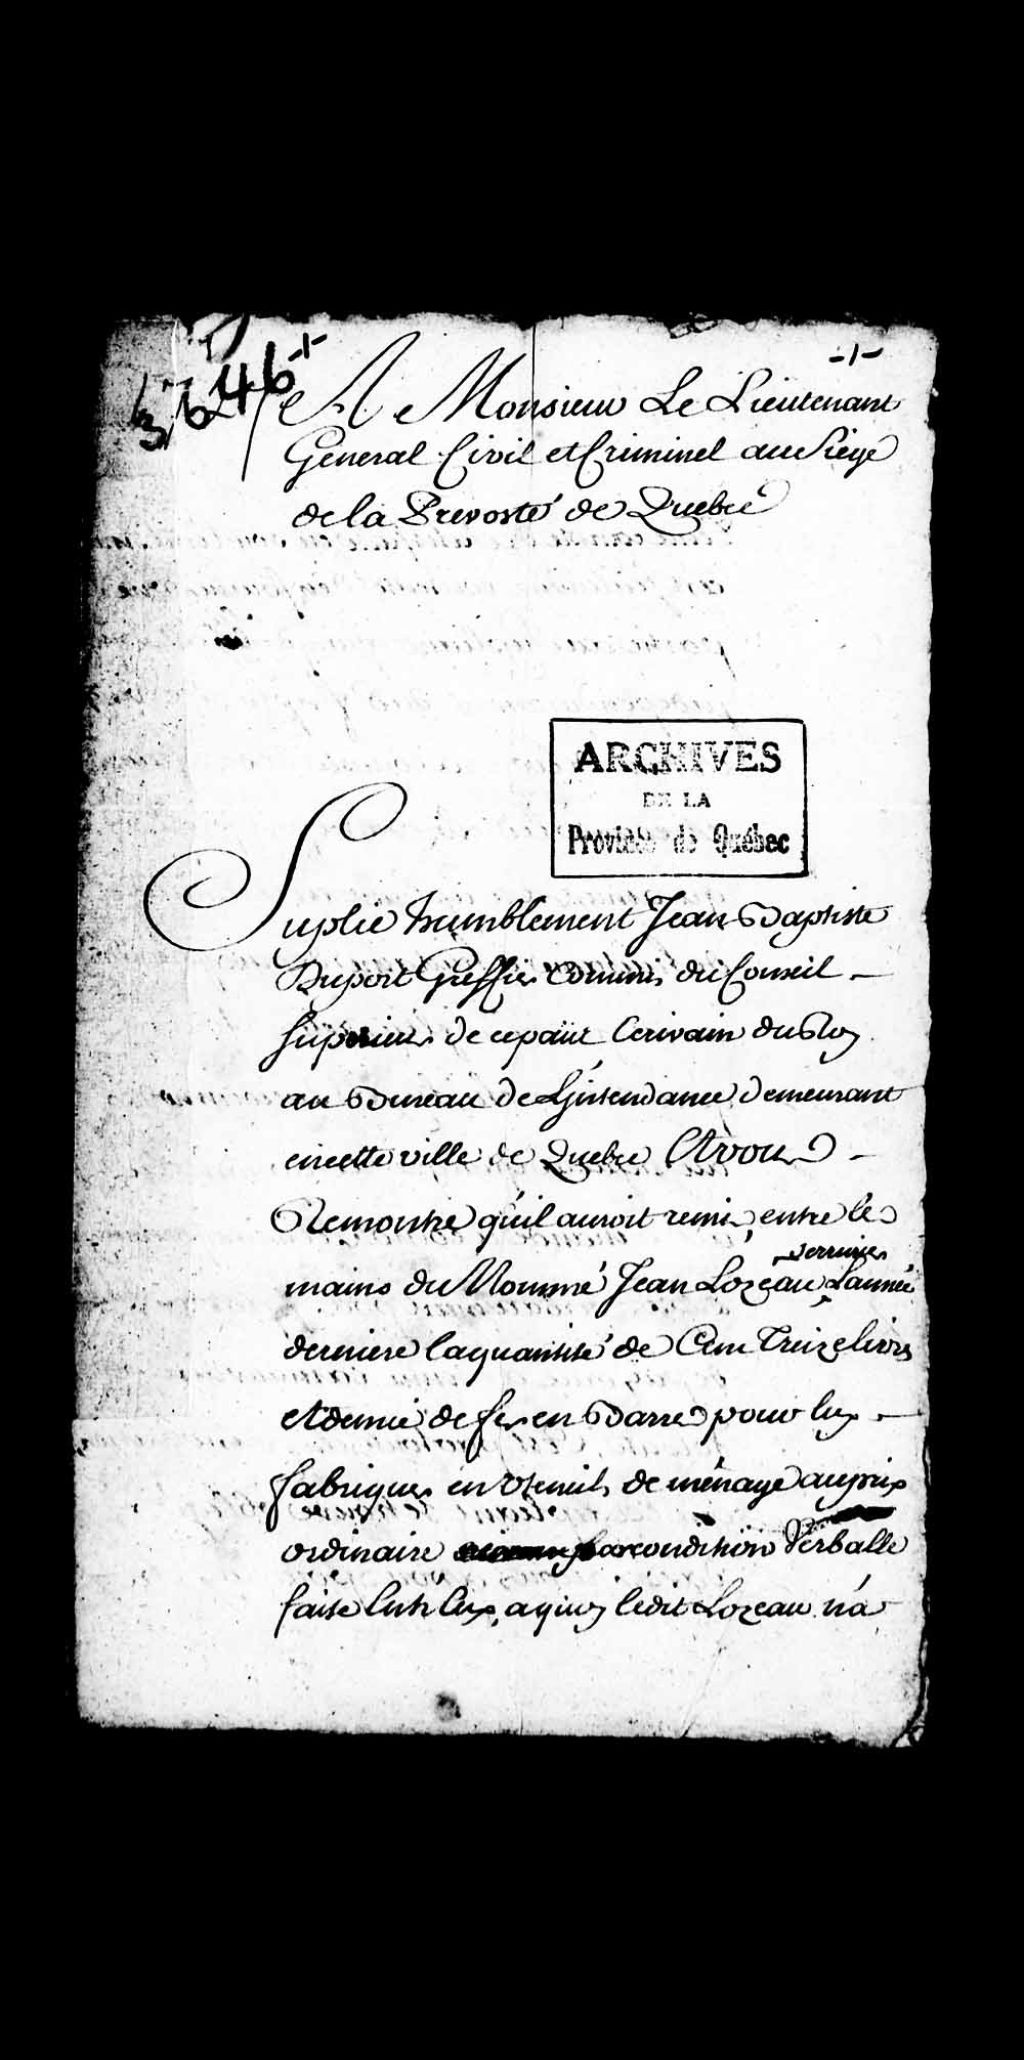 -1-
-1-
3646
A Monsieur Le Lieutenant
General Civil et Criminel au Siege
de la Prevosté de Quebec
ARCHIVES
DE LA
Province de Québec
Suplie humblement Jean Baptiste
Duport Greffier Commis du Conseil
Superieur de ce païs Ecrivain du Roy
au Bureau de L'intendance demeurant
en cette ville de Quebec Et vous
Remontre qu'il auroit remis entre les
serrurier
mains du Nommé Jean Lozeau L'année
derniere la quantité de Cent Treize livres
et demie de fer en Barre pour luy
fabriquer en Utensils de ménage au prix
ordinaire par condition Verballe
faite Entr'Eux, a quoy ledit Lozeau n'a